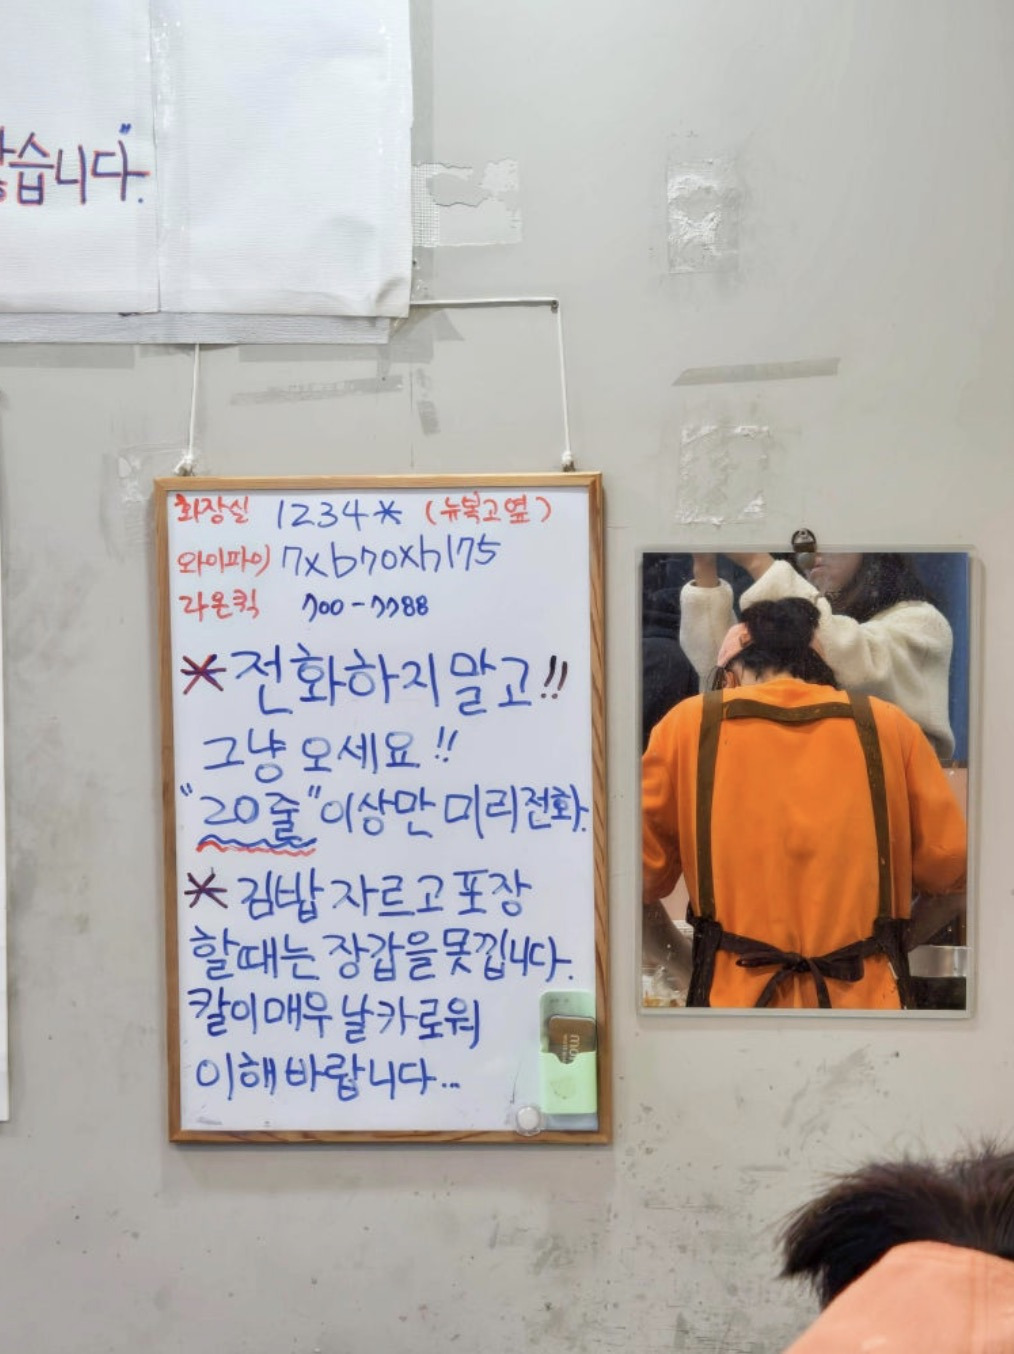 습니다."
화장실 1234* (뉴욕고 옆)
와이파이 7xb70xh175
라온퀵 700-7788
* 전화하지 말고!!
그냥 오세요!!
"20줄"이상만 미리전화.
* 김밥 자르고 포장
할때는 장갑을 못낍니다.
칼이 매우 날카로워
이해 바랍니다...